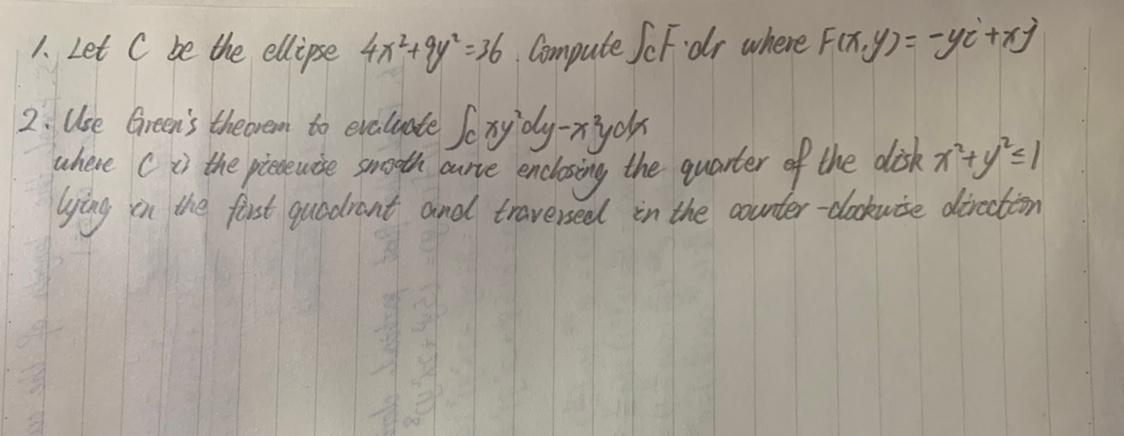 1. Let C be the ellipse 4x²+9y²=36. Compute ∫c F·dr where F(x,y)=-yi+xj
2. Use Green's theorem to evaluate ∫c xy²dy-x²ydx
where C is the piecewise smooth curve enclosing the quarter of the disk x²+y²≤1
lying in the first quadrant and traversed in the counter-clockwise direction